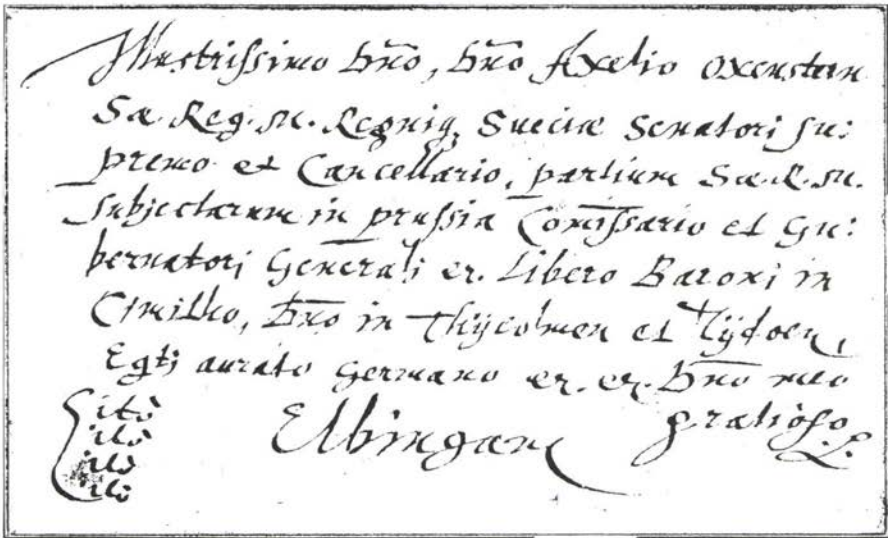 Illustrissimo Dn̄o, Dn̄o Axelio Oxenstern
Sæ. Reg. M. Regniq. Sueciæ Senatori Su:
premo et Cancellario, partium Sæ. R. M.
Subjectarum in prussia Com̄issario et Gu:
bernatori Generali etc. Libero Baroni in
Cimitho, Dn̄o in Thÿcolmen et Tÿdoen,
Eqti aurato Germano etc. etc. Dn̄o meo
Citò gratiòso
citò Elbingam L.
citò
citò